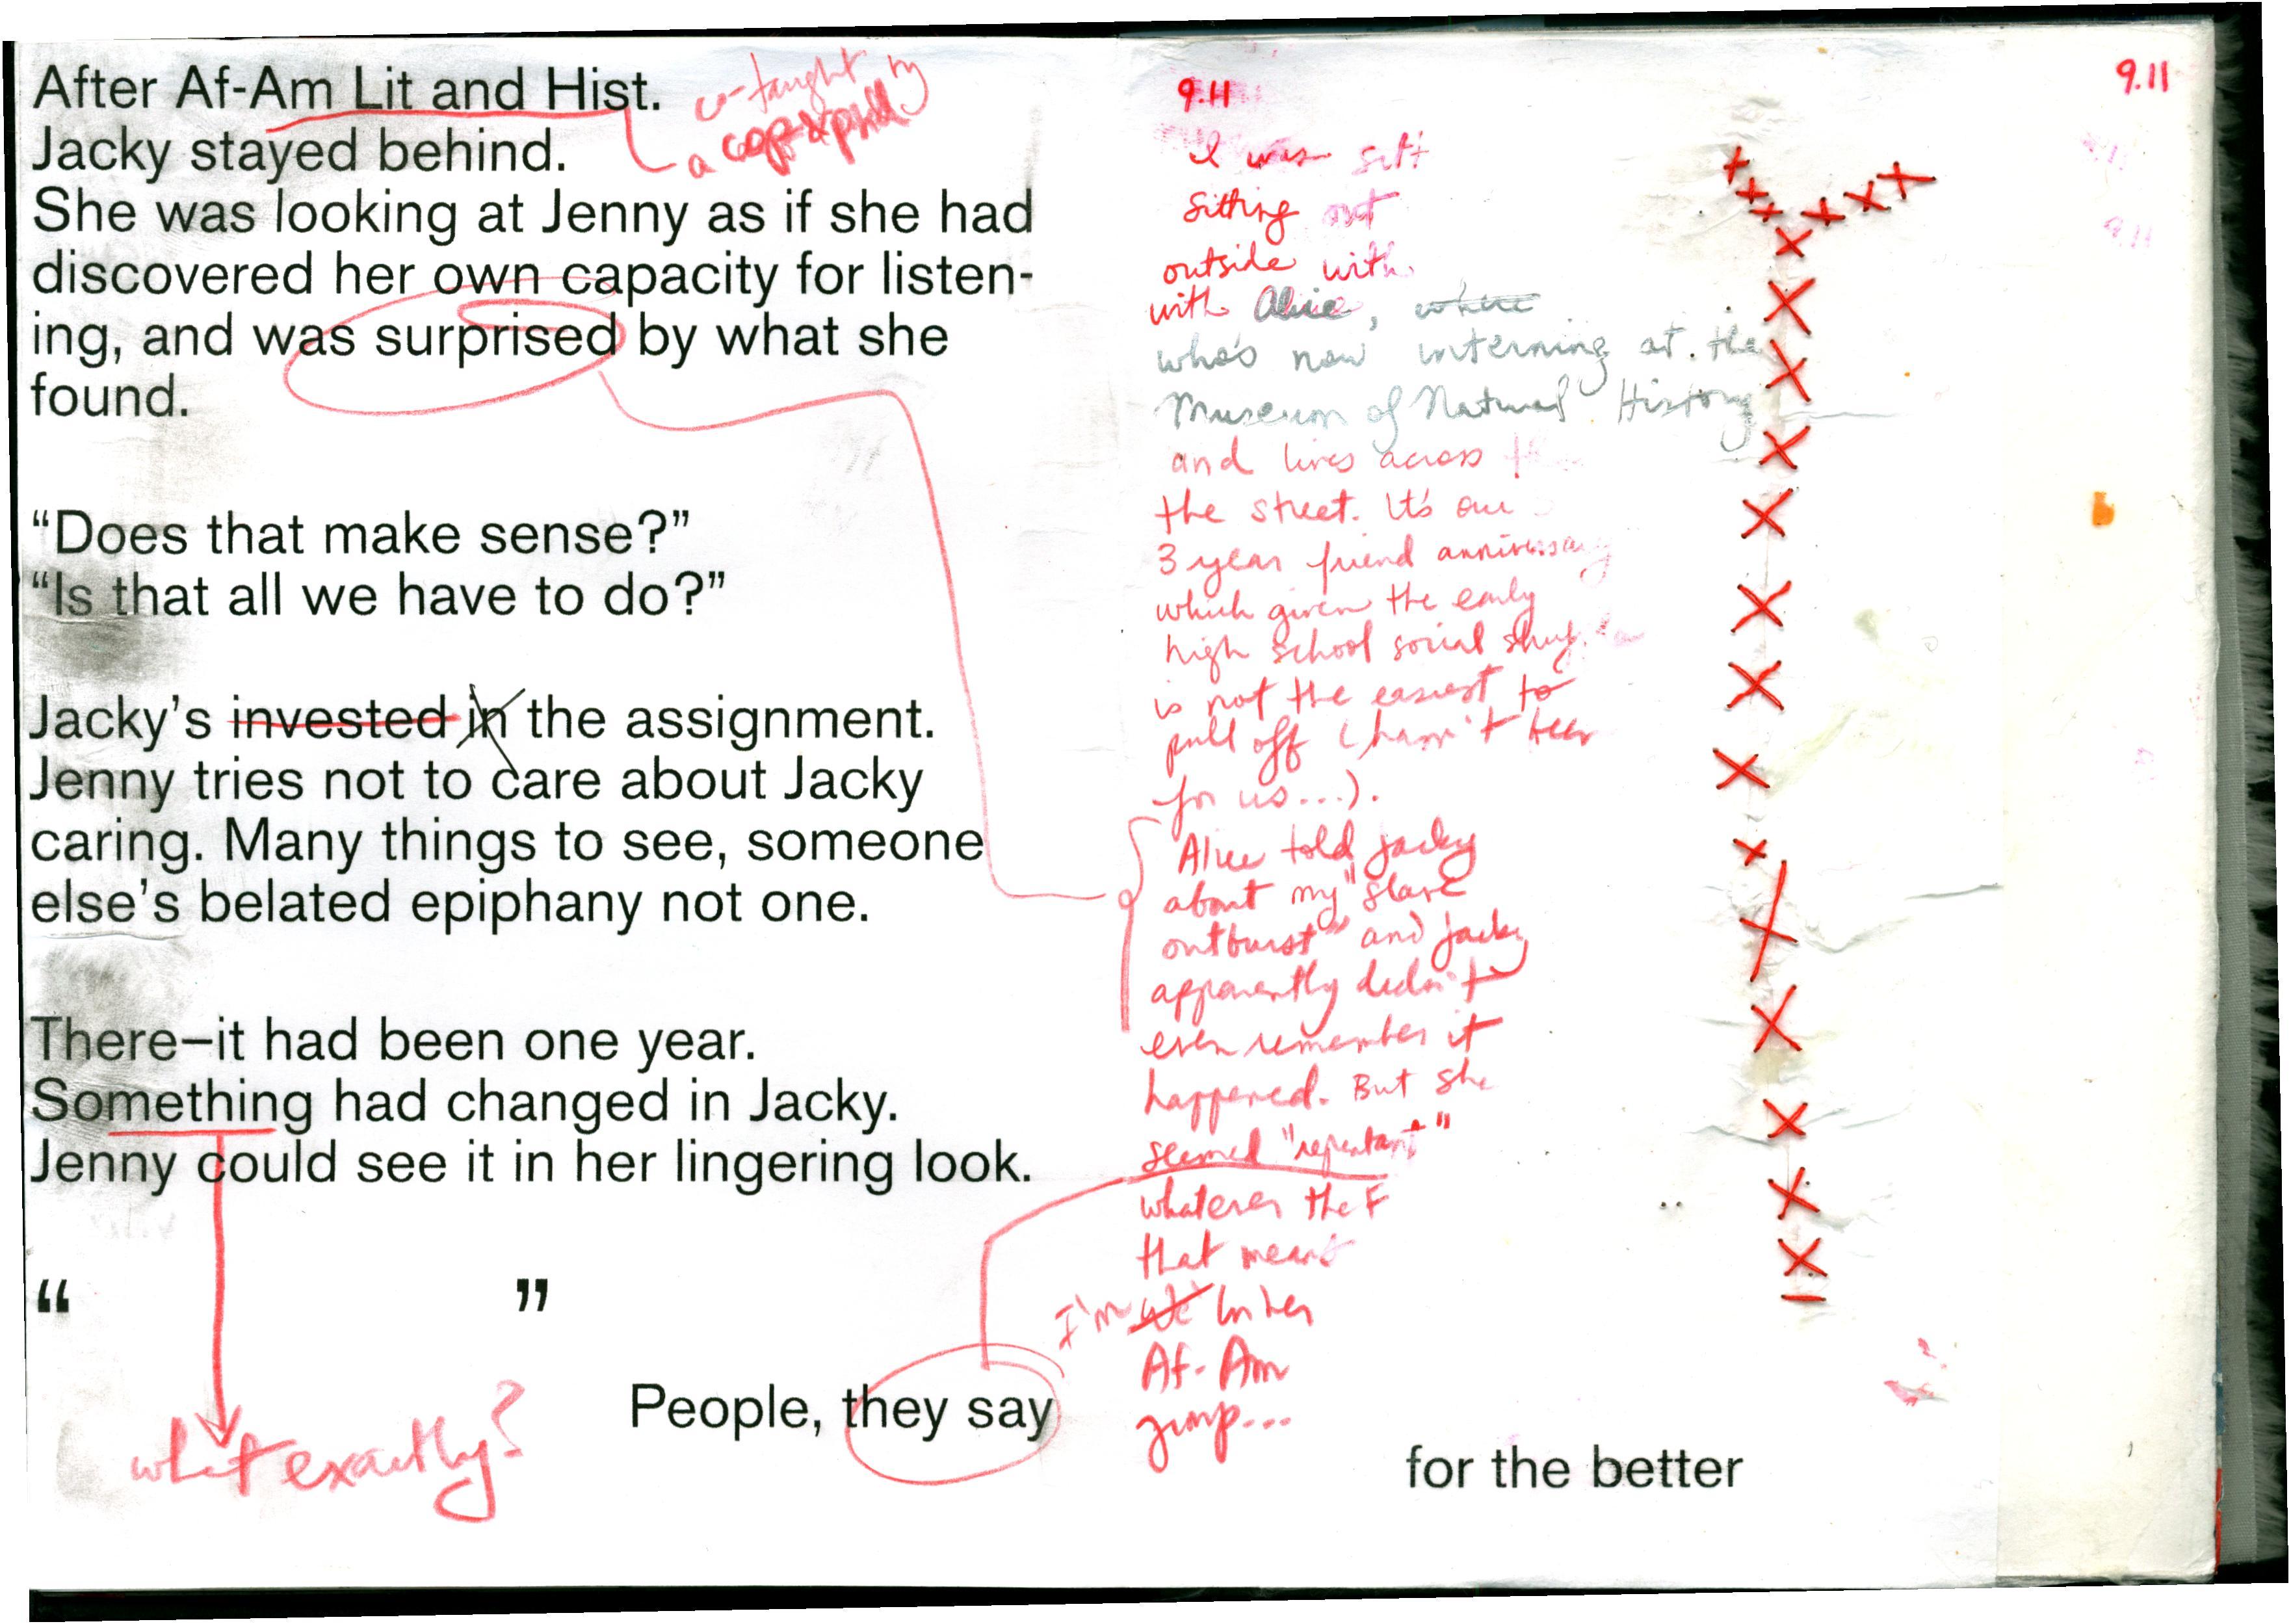 After Af-Am Lit and Hist.
co-taught by
a cop
Jacky stayed behind.
She was looking at Jenny as if she had
discovered her own capacity for listen-
ing, and was surprised by what she
found.
“Does that make sense?”
“Is that all we have to do?”
Jacky’s invested in the assignment.
Jenny tries not to care about Jacky
caring. Many things to see, someone
else’s belated epiphany not one.
There–it had been one year.
Something had changed in Jacky.
Jenny could see it in her lingering look.
“ ”
what exactly?
People, they say
9.11
I was sitt
Sitting out
outside with
with Alice, where
who's now interning at the
Museum of Natural History
and lives across
the street. It's our
3 year friend anniversary
which given the early
high school social
is not the easiest to
pull off (hasn't been
for us...).
Alice told Jacky
about my "slave
outburst" and Jacky
apparently didn't
even remember it
happened. But she
seemed "repentant"
whatever the F
that meant
I'm in her
Af-Am
group...
for the better
9.11
9.11
9.11